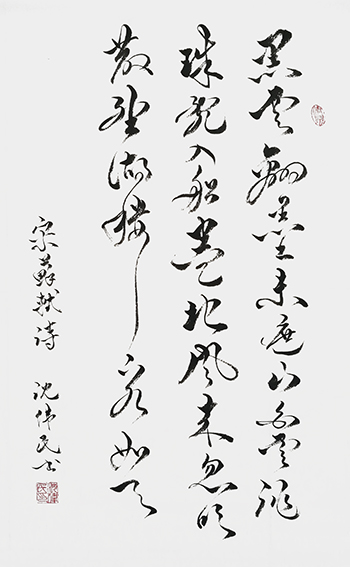 黑云翻墨未遮山白雨跳
珠乱入船卷地风来忽吹
散望湖楼下水如天
宋苏轼诗 沈伟民书